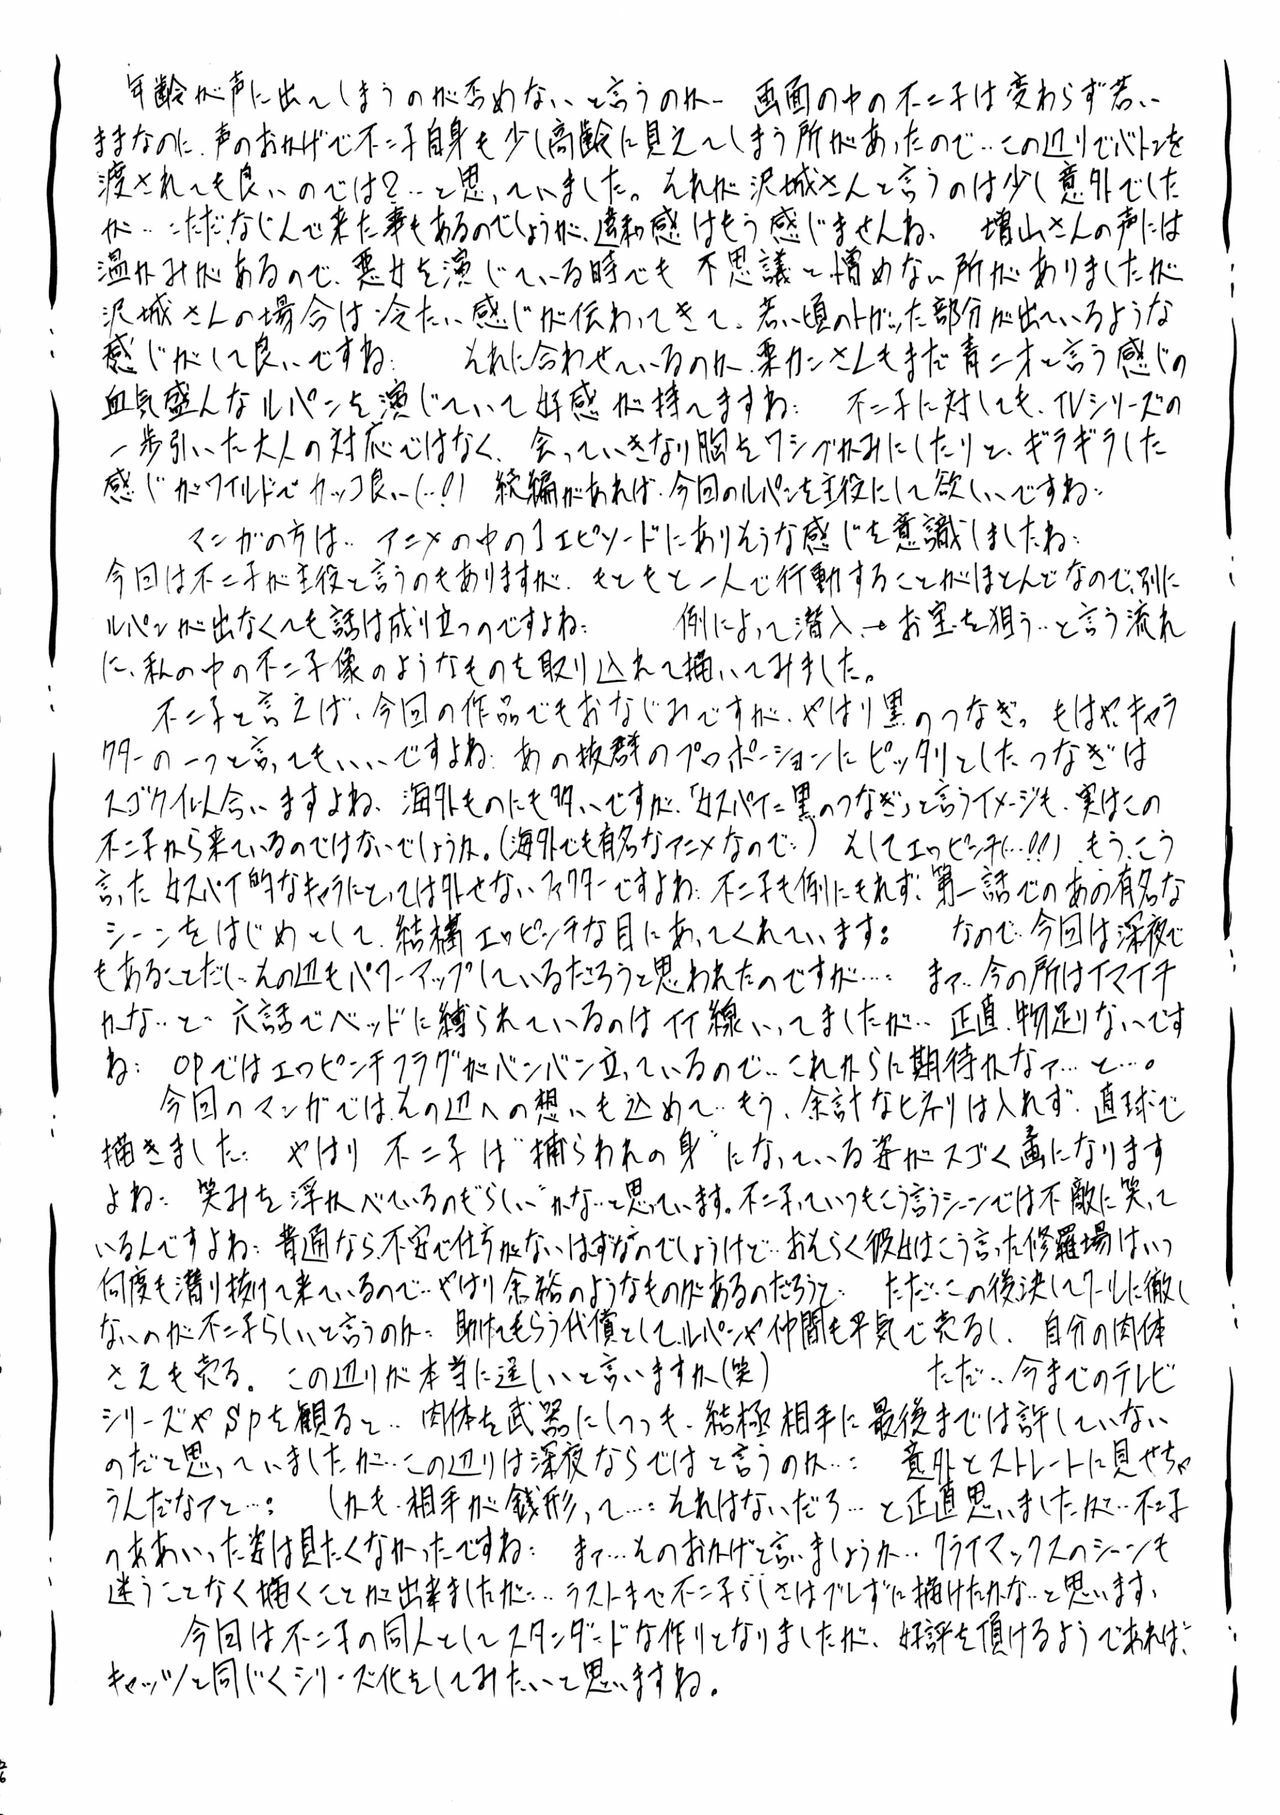 年齢が声に出てしまうのが否めないと言うのか… 画面の中の不二子は変わらず若い
ままなのに、声のおかげで不二子自身も少し高齢に見えてしまう所があったので…この辺りでバトンを
渡されても良いのでは?…と思っていました。それが沢城さんと言うのは少し意外でした
が…ただ、なじんで来た事もあるのでしょうが、違和感はもう感じませんね、 増山さんの声には
温かみがあるので、悪女を演じている時でも 不思議と憎めない所がありましたが
沢城さんの場合は冷たい感じが伝わってきて、若い頃のトガッた部分が出ているような
感じがして良いですね… それに合わせているのか、栗カンさんもまだ青二才と言う感じの
血気盛んなルパンを演じていて好感が持てますね… 不二子に対しても、TVシリーズの
一歩引いた大人の対応ではなく、会っていきなり胸をワシづかみにしたりと、ギラギラした
感じがワイルドでカッコ良い(…!) 続編があれば、今回のルパンを主役にして欲しいですね…
マンガの方は… アニメの中の1エピソードにありそうな感じを意識しましたね…
今回は不二子が主役と言うのもありますが、もともと一人で行動することがほとんどなので、別に
ルパンが出なくても話は成り立つのですよね… 例によって潜入→お宝を狙う…と言う流れ
に、私の中の不二子像のようなものを取り込れて描いてみました。
不二子と言えば、今回の作品でもおなじみですが、やはり黒のつなぎ。もはや、キャラ
クターの一つと言ってもいいですよね… あの抜群のプロポーションにピッタリとしたつなぎは
スゴク似合いますよね、海外ものにも多いですが、「女スパイ=黒のつなぎ」と言うイメージも、実はこの
不二子から来ているのではないでしょうか。(海外でも有名なアニメなので…) そしてエロピンチ(…!!) もう、こう
言った女スパイ的なキャラにとっては外せないファクターですよね… 不二子も例にもれず、第一話でのあの有名な
シーンをはじめとして、結構エロピンチな目にあってくれています… なので…今回は深夜で
もあることだし…その辺もパワーアップしているだろうと思われたのですが…… まァ…今の所はイマイチ
かな…と… 六話でベッドに縛られているのはイイ線いってましたが… 正直、物足りないです
ね… OPではエロピンチフラグがバンバン立っているので…これからに期待かなァ…と…。
今回のマンガでは、その辺への想いも込めて…もう、余計なヒネリは入れず、直球で
描きました… やはり 不二子は"捕らわれの身"になっている姿がスゴく画になります
よね… 笑みを浮かべているのも"らしい"かな…と思っています。不二子っていつもこう言うシーンでは不敵に笑って
いるんですよね… 普通なら、不安で仕方がないはずなのでしょうけど…おそらく彼女はこう言った修羅場はいつ
何度も潜り抜けて来ているので…やはり余裕のようなものがあるのだろうと… ただ…この後決してクールに徹し
ないのが不二子らしいと言うのか… 助けてもらう代償として、ルパンや仲間も平気で売るし、 自分の肉体
さえも売る。この辺りが本当に逞しいと言いますか(笑) ただ…今までのテレビ
シリーズやSPを観ると… 肉体を武器にしつつも、結極相手に最後までは許していない
のだと思っていましたが…この辺りは深夜ならではと言うのか…… 意外とストレートに見せちゃ
うんだなァと…… しかも、相手が銭形って…… それはないだろ…と正直思いましたが…不二子
のああいった姿は見たくなかったですね… まァ…そのおかげと言いましょうか…クライマックスのシーンも
迷うことなく描くことが出来ましたが… ラストまで不二子らしさはブレずに描けたかな…と思います、
今回は不二子の同人としてスタンダードな作りとなりましたが、好評を頂けるようであれば、
キャッツと同じくシリーズ化をしてみたいと思いますね。